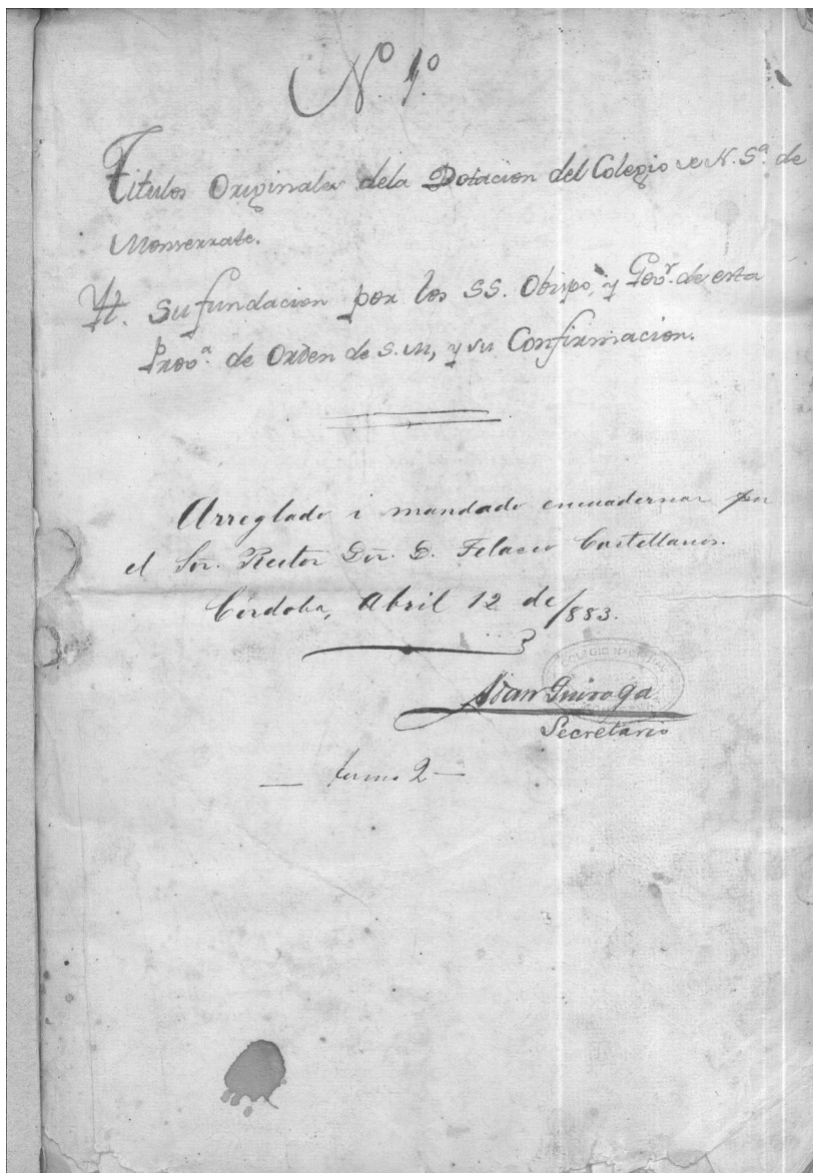 Nº. 1.º
Titulos Originales dela Dotacion del Colegio de N. Sª. de
Monserrate.
Yt. Su fundacion por los SS. Obispo, y Govʳ. de esta
Provª. de Orden de S. M, y su Confirmacion.
Arreglado i mandado encuadernar por
el Sor. Rector Dor. D. Telasco Castellanos.
Córdoba, Abril 12 de /883.
COLEGIO NACIONAL
Adan Quiroga
Secretario
— tomo 2 —